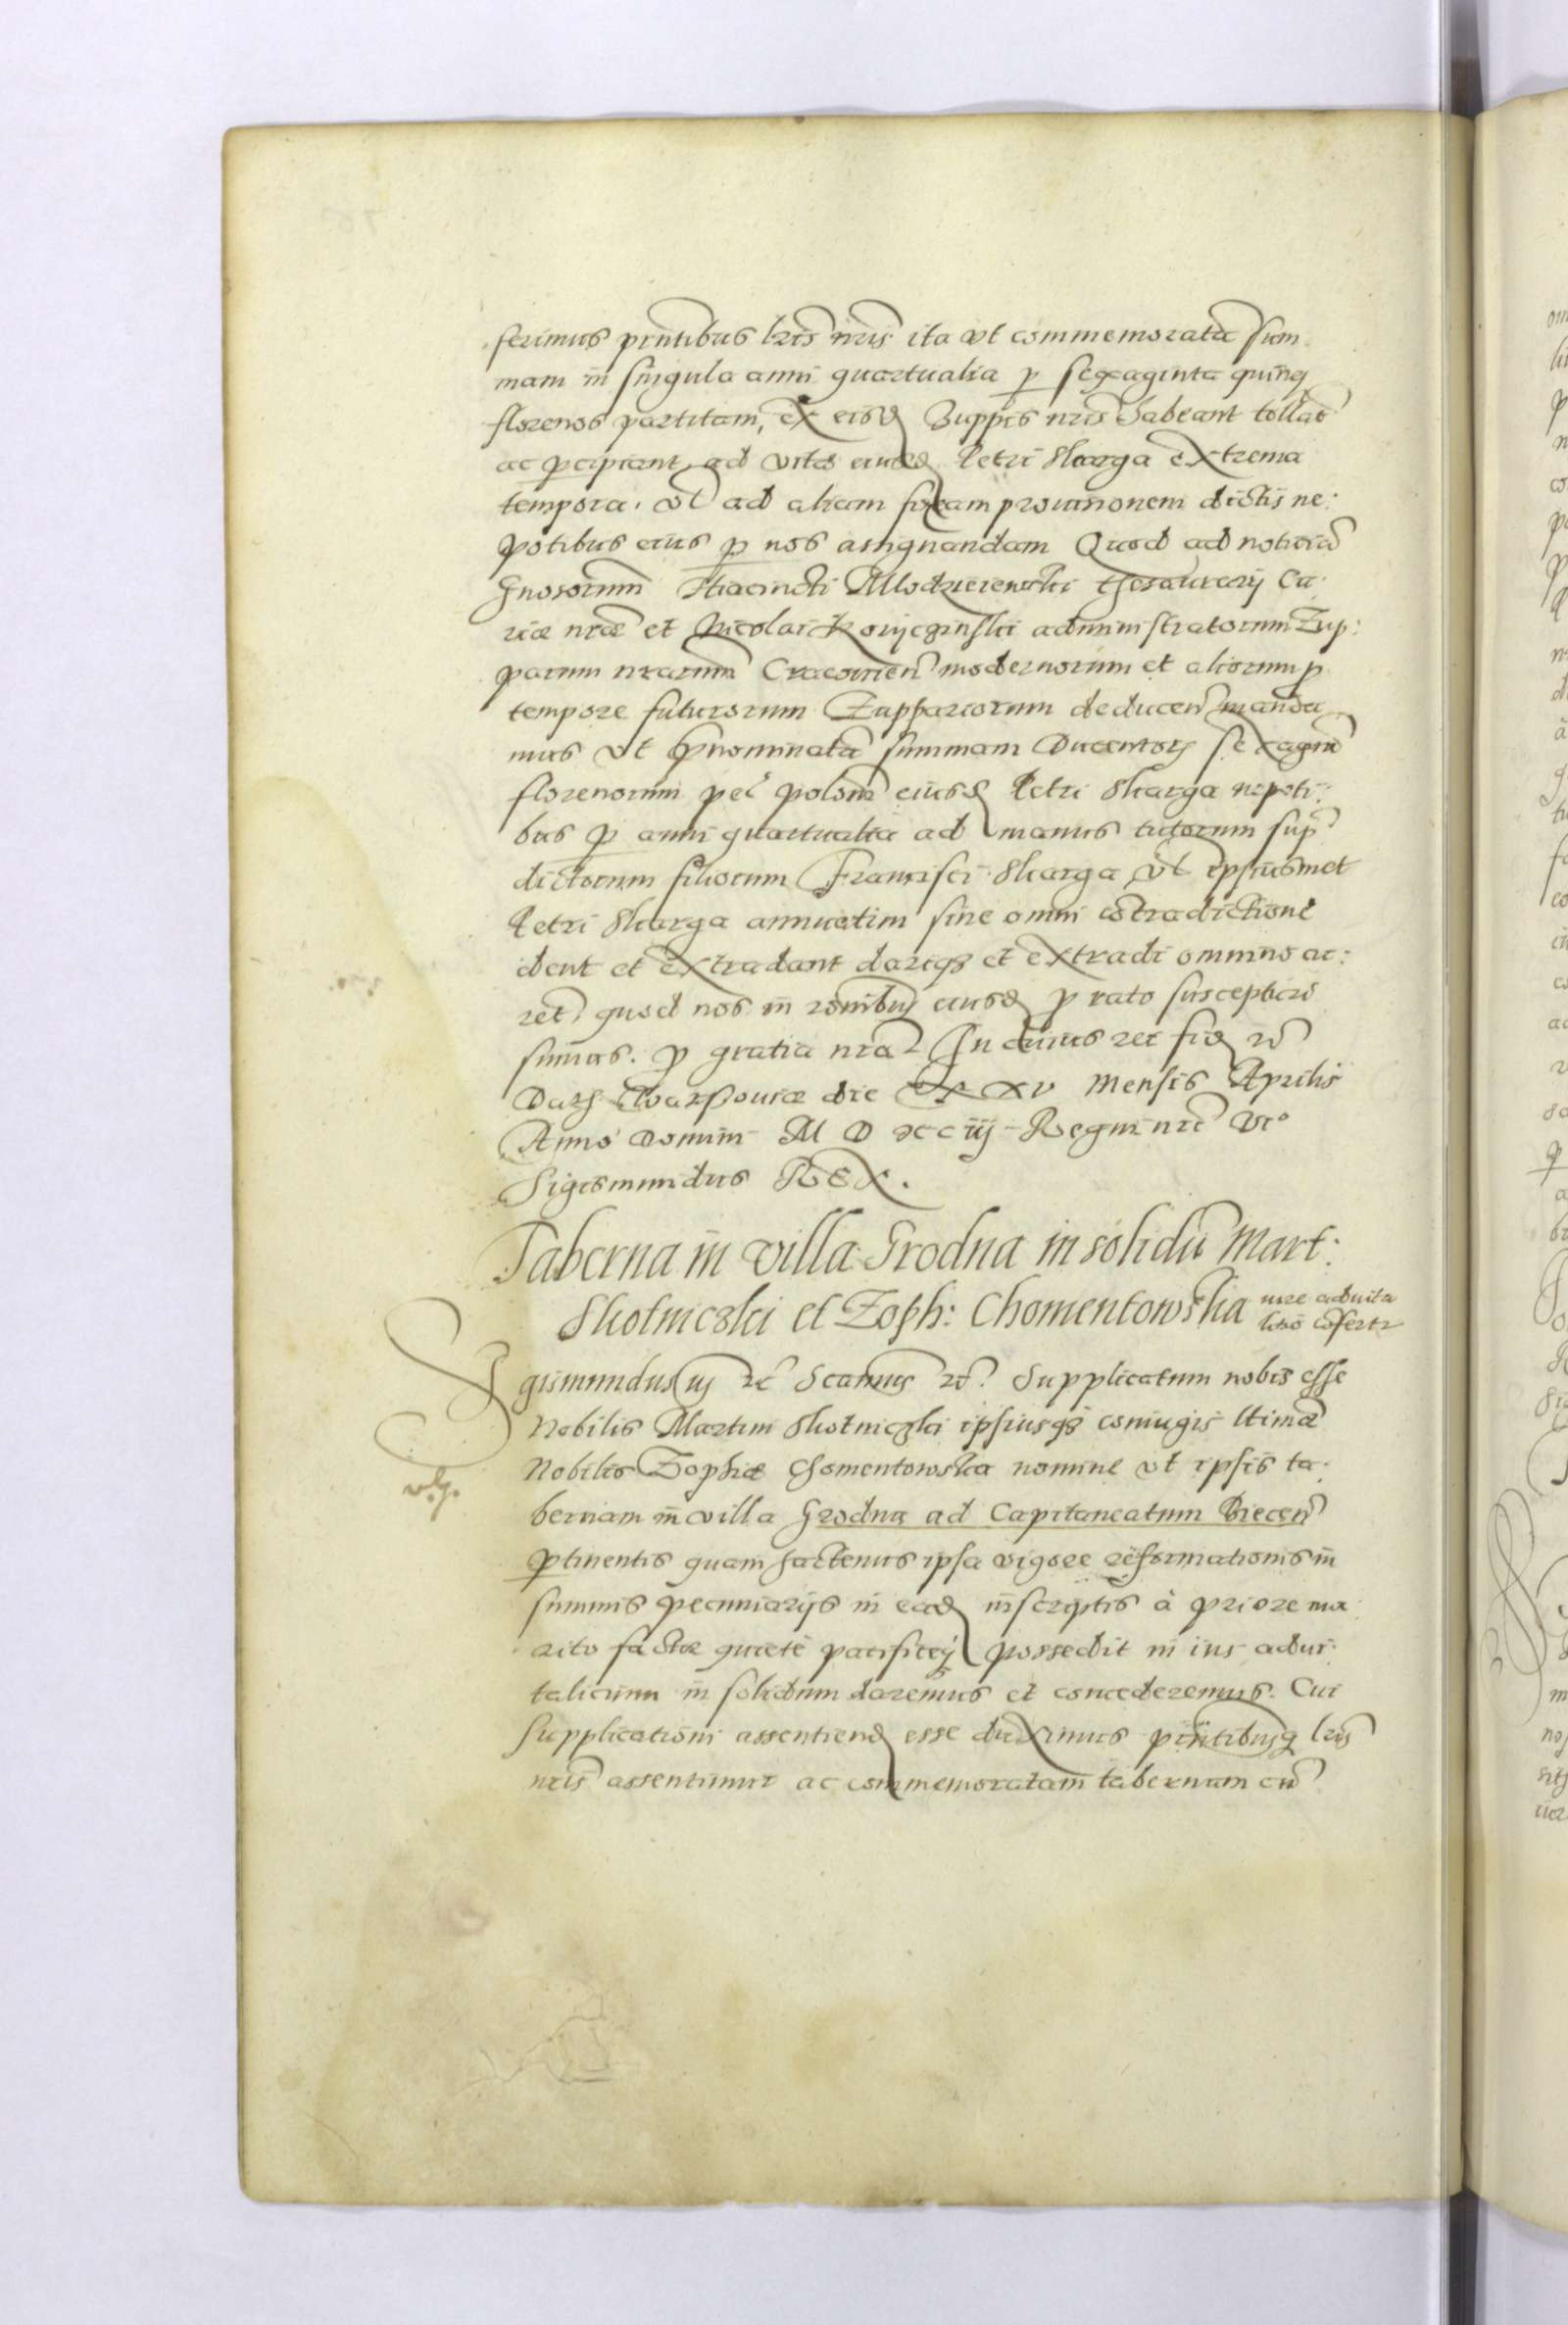 ferimus pr̄ntibus lr̃is nr̃is ita vt commemoratã sum
mam in singula anni quartualia p̱ sexaginta quinq̢
florenos partitam, ex eisd̢ Zuppis nr̃is habeant tollãt
ac p̱cipiant, ad vitæ eiusd̢ Petri Skarga extrema
tempora, vl ad aliam fixam prouisionem dictis ne:
potibus eius p̱ nos assignandam Quod ad notitiã
Gnosorum Hiacincti Mlodzieiewski thesaurarij Cu:
riæ nr̃æ et Nicolai Korijcginski administratorum Zup:
parum nr̃arum Cracouien̄ modernorum et aliorum p̱
tempore futurorum Zuppariorum deducen̄ manda
mus vt p̄nominatã summam Ducentor̢ sexagin̄
florenorum pec̃ polon̄ eiusd̢ Petri Skarga nepoti:
bus p̱ anni quartualia ad manus tutorum sup̃
dictorum filiorum Francisci Skarga vl ipsiusmet
Petri Skarga annuatim sine omni cõtradictione
dent et extradant dariq̢ et extradi omnino ac:
ret̃, quod nos in rōnibus eiusd̢ p̱ rato suscepturi
sumus. p̱ gratia nr̃a. In cuius rei fid̢ rc̃
Dat̢ Warssouiæ die XXV Mensis Aprilis
Anno Domini M D XCiij Regni nr̃i Vtº
Sigismundus REX.
Taberna in villa Grodna in solidũ Mart:
Skotniczki et Zoph: Chomentowskia iure aduita
litio cõfertr
Sigismundus iij rc̃ Scamus rc̃. Supplicatum nobis esse
Nobilis Martini Skotniczki ipsiusq̢ coniugis l̃timæ
Nobilis Zophiæ Chomentowska nomine vt ipsis ta:
bernam in villa Grodna ad Capitaneatum Biecen̄
p̱tinentis quam hactenus ipsa vigore reformationis in
summis pecuniarijs in ead̢ inscriptis à priore ma
rito factæ quietè pacificeq̢ possedit in ius adui:
talicium in solidum daremus et concederemus. Cui
supplicationi assentiend̢ esse duximus p̄ntibusq̢ lr̃is
nr̃is assentimur ac commemoratam tabernam cũ